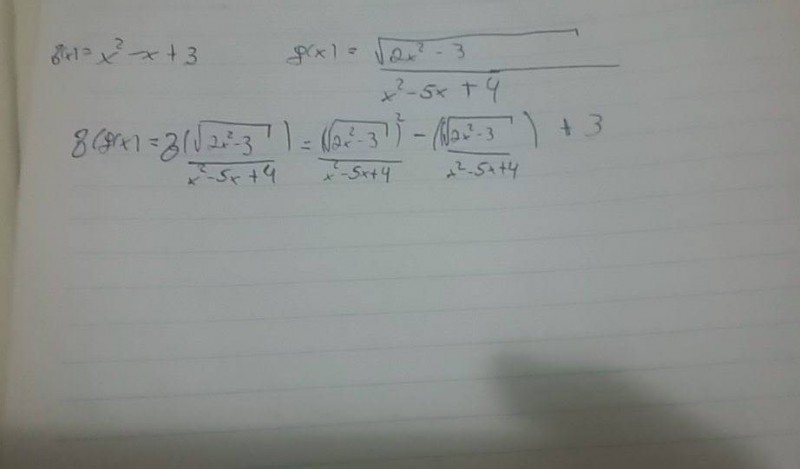 f(x) = x² - x + 3 g(x) = √(2x² - 3) / (x² - 5x + 4)
f(g(x) = f(√(2x² - 3) / (x² - 5x + 4)) = (√(2x² - 3) / (x² - 5x + 4))² - (√(2x² - 3) / (x² - 5x + 4)) + 3